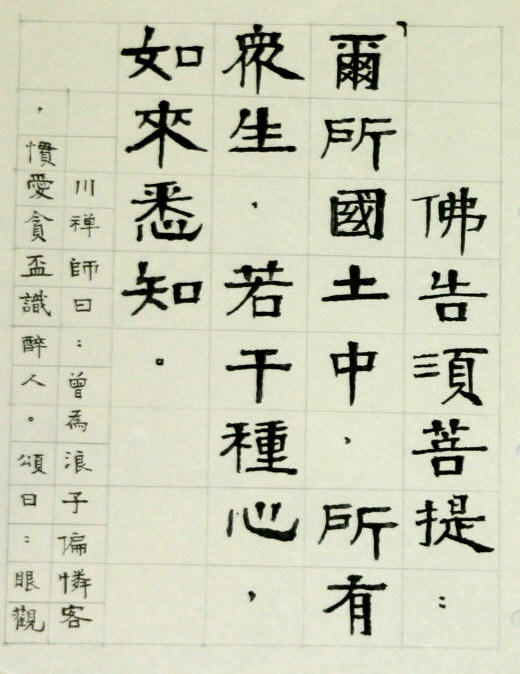 佛告須菩提：
「爾所國土中，所有
衆生，若干種心，
如來悉知。
川禅師曰：曾為浪子偏憐客
，慣愛貪盃識醉人。頌曰：眼觀